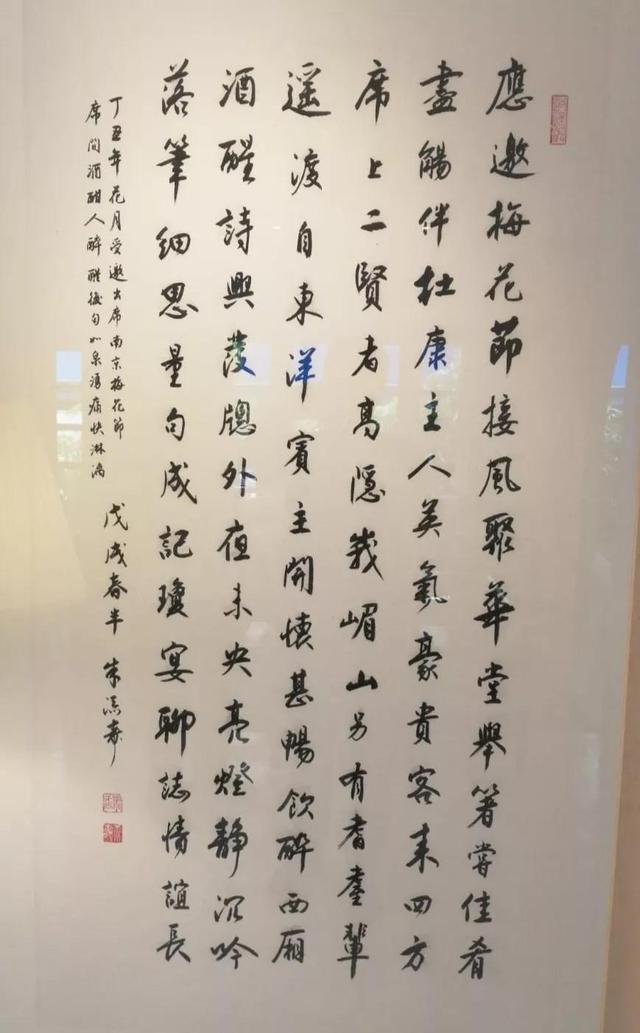 應邀梅花節接風聚華堂舉箸嘗佳肴
盡觴伴杜康主人英氣豪貴客來四方
席上二賢者高隱峩嵋山另有耆耋輩
遥渡自東洋賓主開懷甚暢飲醉西厢
酒醒詩興發窗外夜未央亮燈静沉吟
落筆細思量句成記瓊宴聊誌情誼長
丁丑年花月受邀出席南京梅花節
席間酒酣人醉醒後句如泉湧痛快淋漓
戊戌春半 朱